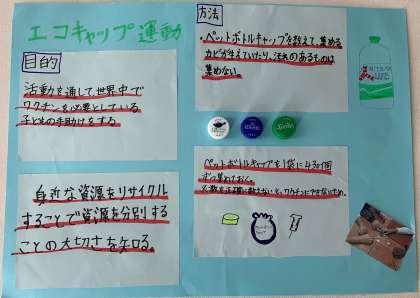 エコキャップ運動
目的
活動を通して世界中で
ワクチンを必要としている
子どもの手助けをする
身近な資源をリサイクル
することで資源を分別する
ことの大切さを知る。
方法
・ペットボトルキャップを数えて、集める
カビが生えていたり、汚れのあるものは
集めない。
ペットボトルキャップを1袋に430個
ずつ集めておく。